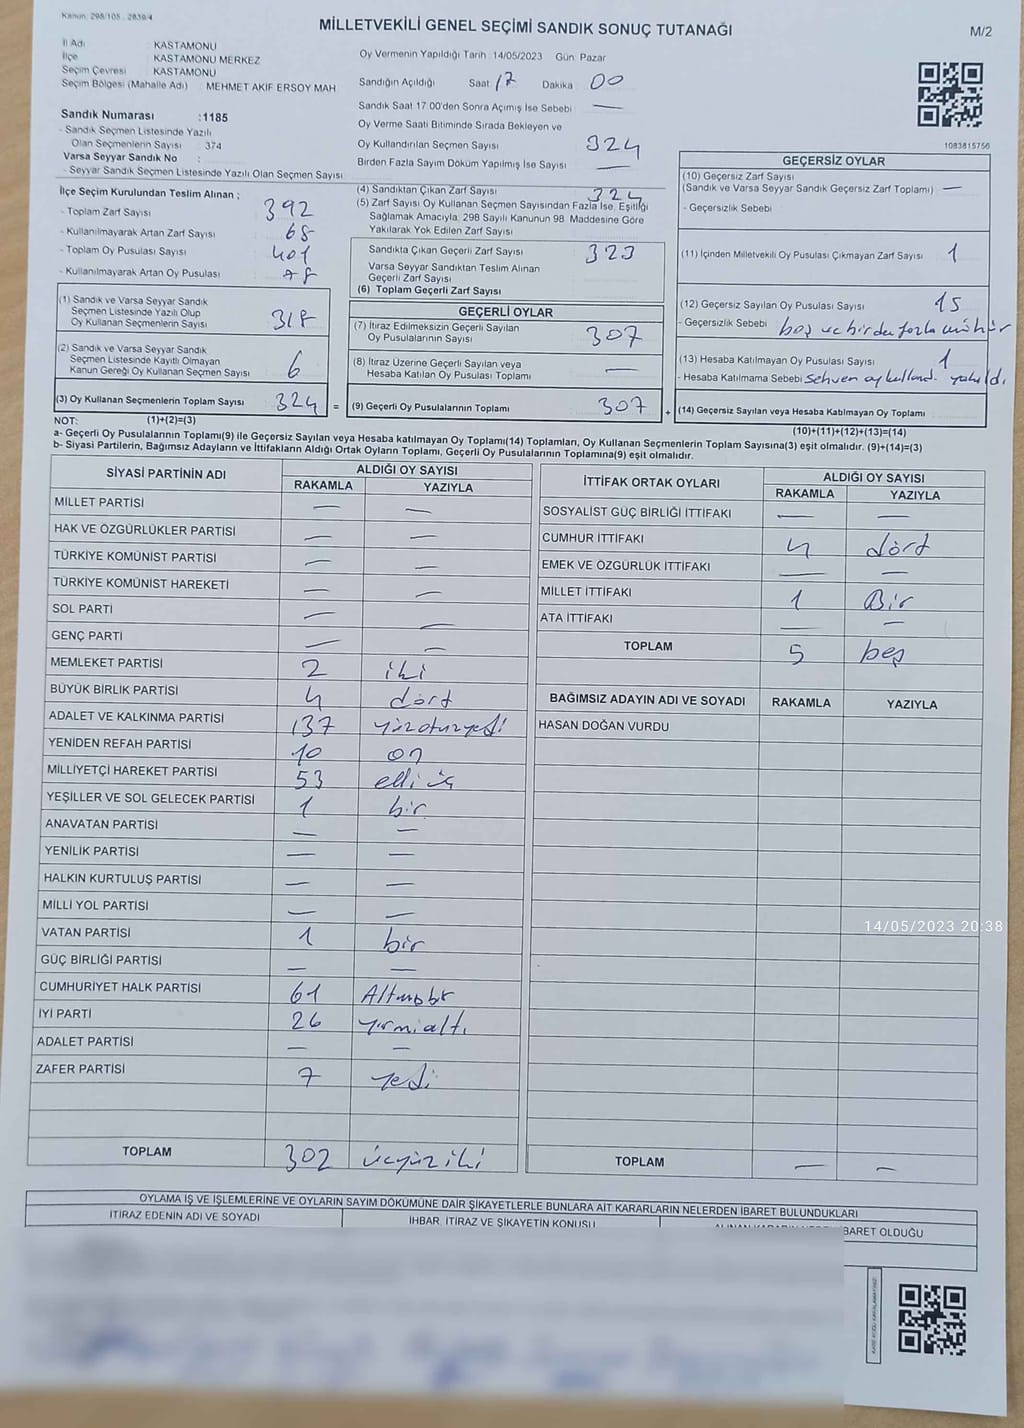 Kanun: 298/105 . 2839/4
MİLLETVEKİLİ GENEL SEÇİMİ SANDIK SONUÇ TUTANAĞI
M/2
İl Adı : KASTAMONU
İlçe : KASTAMONU MERKEZ
Seçim Çevresi : KASTAMONU
Seçim Bölgesi (Mahalle Adı) : MEHMET AKIF ERSOY MAH
Sandık Numarası :1185
- Sandık Seçmen Listesinde Yazılı
Olan Seçmenlerin Sayısı : 374
Varsa Seyyar Sandık No :
- Seyyar Sandık Seçmen Listesinde Yazılı Olan Seçmen Sayısı :
Oy Vermenin Yapıldığı Tarih : 14/05/2023 Gün: Pazar
Sandığın Açıldığı Saat : 17 Dakika : 00
Sandık Saat 17.00'den Sonra Açımış İse Sebebi : —
Oy Verme Saati Bitiminde Sırada Bekleyen ve
Oy Kullandırılan Seçmen Sayısı : 324
Birden Fazla Sayım Döküm Yapılmış İse Sayısı : —
1083815756
İlçe Seçim Kurulundan Teslim Alınan ;
- Toplam Zarf Sayısı : 392
- Kullanılmayarak Artan Zarf Sayısı : 68
- Toplam Oy Pusulası Sayısı : 401
- Kullanılmayarak Artan Oy Pusulası :
(1) Sandık ve Varsa Seyyar Sandık
Seçmen Listesinde Yazılı Olup
Oy Kullanan Seçmenlerin Sayısı : 318
(2) Sandık ve Varsa Seyyar Sandık
Seçmen Listesinde Kayıtlı Olmayan
Kanun Gereği Oy Kullanan Seçmen Sayısı : 6
(3) Oy Kullanan Seçmenlerin Toplam Sayısı : 324 =
(4) Sandıktan Çıkan Zarf Sayısı : 324
(5) Zarf Sayısı Oy Kullanan Seçmen Sayısından Fazla İse, Eşitliği
Sağlamak Amacıyla; 298 Sayılı Kanunun 98. Maddesine Göre
Yakılarak Yok Edilen Zarf Sayısı :
Sandıkta Çıkan Geçerli Zarf Sayısı : 323
Varsa Seyyar Sandıktan Teslim Alınan
Geçerli Zarf Sayısı :
(6) Toplam Geçerli Zarf Sayısı :
GEÇERLİ OYLAR
(7) İtiraz Edilmeksizin Geçerli Sayılan
Oy Pusulalarının Sayısı : 307
(8) İtiraz Üzerine Geçerli Sayılan veya
Hesaba Katılan Oy Pusulası Toplamı : —
(9) Geçerli Oy Pusulalarının Toplamı : 307 +
GEÇERSİZ OYLAR
(10) Geçersiz Zarf Sayısı :
(Sandık ve Varsa Seyyar Sandık Geçersiz Zarf Toplamı) —
- Geçersizlik Sebebi :
(11) İçinden Milletvekili Oy Pusulası Çıkmayan Zarf Sayısı : 1
(12) Geçersiz Sayılan Oy Pusulası Sayısı : 15
- Geçersizlik Sebebi : boş ve birden fazla mühür
(13) Hesaba Katılmayan Oy Pusulası Sayısı : 1
- Hesaba Katılmama Sebebi : Sehven oy kulland. yakıldı
(14) Geçersiz Sayılan veya Hesaba Katılmayan Oy Toplamı :
NOT: (1)+(2)=(3) (10)+(11)+(12)+(13)=(14)
a- Geçerli Oy Pusulalarının Toplamı(9) ile Geçersiz Sayılan veya Hesaba katılmayan Oy Toplamı(14) Toplamları, Oy Kullanan Seçmenlerin Toplam Sayısına(3) eşit olmalıdır. (9)+(14)=(3)
b- Siyasi Partilerin, Bağımsız Adayların ve İttifakların Aldığı Ortak Oyların Toplamı, Geçerli Oy Pusulalarının Toplamına(9) eşit olmalıdır.
SİYASİ PARTİNİN ADI ALDIĞI OY SAYISI
RAKAMLA YAZIYLA
MİLLET PARTİSİ — —
HAK VE ÖZGÜRLÜKLER PARTİSİ — —
TÜRKİYE KOMÜNİST PARTİSİ — —
TÜRKİYE KOMÜNİST HAREKETİ — —
SOL PARTİ — —
GENÇ PARTİ — —
MEMLEKET PARTİSİ 2 iki
BÜYÜK BİRLİK PARTİSİ 4 dört
ADALET VE KALKINMA PARTİSİ 137 yüzotuzyedi
YENİDEN REFAH PARTİSİ 10 on
MİLLİYETÇİ HAREKET PARTİSİ 53 elli üç
YEŞİLLER VE SOL GELECEK PARTİSİ 1 bir
ANAVATAN PARTİSİ — —
YENİLİK PARTİSİ — —
HALKIN KURTULUŞ PARTİSİ — —
MİLLİ YOL PARTİSİ — —
VATAN PARTİSİ 1 bir
GÜÇ BİRLİĞİ PARTİSİ — —
CUMHURİYET HALK PARTİSİ 61 Altmışbir
İYİ PARTİ 26 yirmialtı
ADALET PARTİSİ — —
ZAFER PARTİSİ 7 yedi
TOPLAM 302 üçyüziki
İTTİFAK ORTAK OYLARI ALDIĞI OY SAYISI
RAKAMLA YAZIYLA
SOSYALİST GÜÇ BİRLİĞİ İTTİFAKI — —
CUMHUR İTTİFAKI 4 dört
EMEK VE ÖZGÜRLÜK İTTİFAKI — —
MİLLET İTTİFAKI 1 Bir
ATA İTTİFAKI — —
TOPLAM 5 beş
BAĞIMSIZ ADAYIN ADI VE SOYADI RAKAMLA YAZIYLA
HASAN DOĞAN VURDU
14/05/2023 20:38
TOPLAM — —
OYLAMA İŞ VE İŞLEMLERİNE VE OYLARIN SAYIM DÖKÜMÜNE DAİR ŞİKAYETLERLE BUNLARA AİT KARARLARIN NELERDEN İBARET BULUNDUKLARI
İTİRAZ EDENİN ADI VE SOYADI İHBAR, İTİRAZ VE ŞİKAYETİN KONUSU ALINAN KARARIN İBARET OLDUĞU
KARE KODU KARALAMAYINIZ!